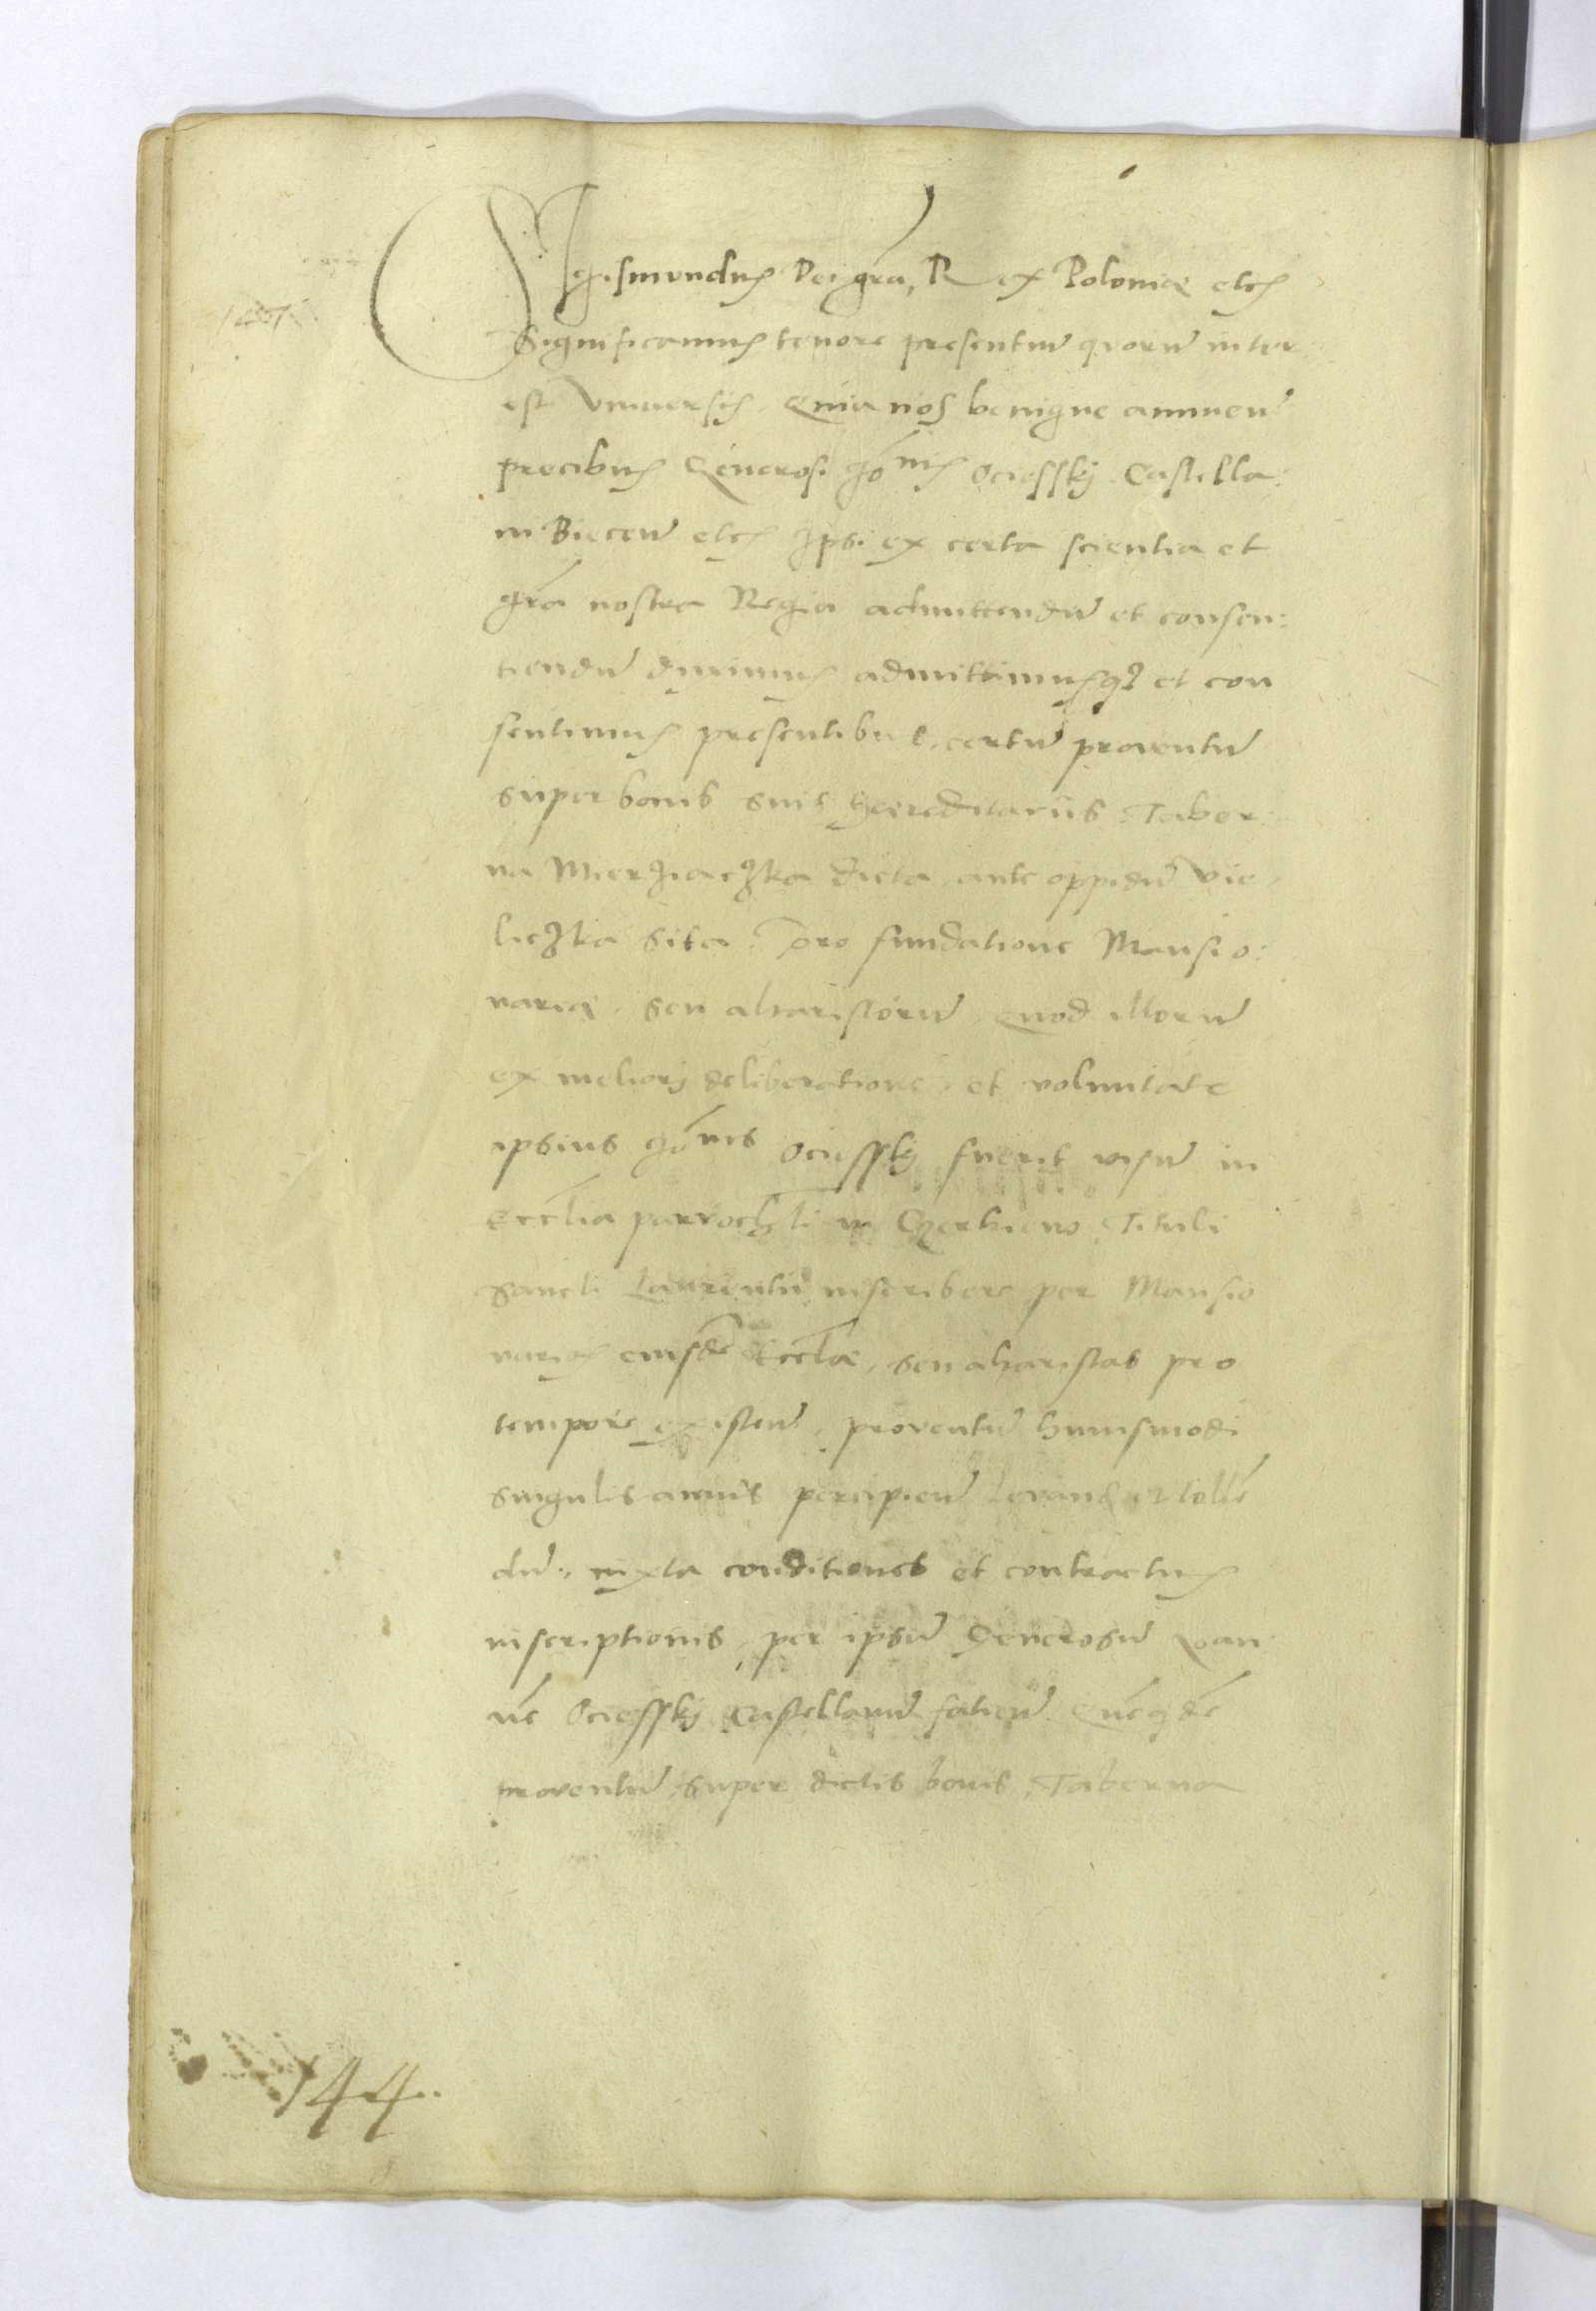 Sigismundus Dei gra, Rex Poloniæ etc
Significamus tenore presentiu quoru inter
est Vniuersis. Quia nos benigne annuen
precibus Generosi Jōnis Ociessky Castella:
ni Biecen etc Ipsi ex certa scientia et
gra nostra Regia admittendu et consen:
tiendu duximus admittimusq; et con
sentimus presentibus, certu prouentu
super bonis suis hereditariis Taber:
na Mierziaczka dicta, ante oppidu Vie
liczka sita. Pro fundatione Mansio:
nariorum, seu altaristaru quod illoru
ex meliorj deliberatione, et voluntate
ipsius Jōnis Ociessky fuerit visu in
Ecclia parrochli in Tituli
Sancti Laurentii inscribere per Mansio
narios eiusde Eccliæ, seu altaristas pro
tempore existen, prouentu huiusmodi
singulis annis percipien leuand et tolle
du, iuxta conditiones et contractus
inscriptionis, per ipsu Generosu Joan
ne Ociessky Castellanu fatien. Queq de
prouentu super dictis bonis Taberna
144.